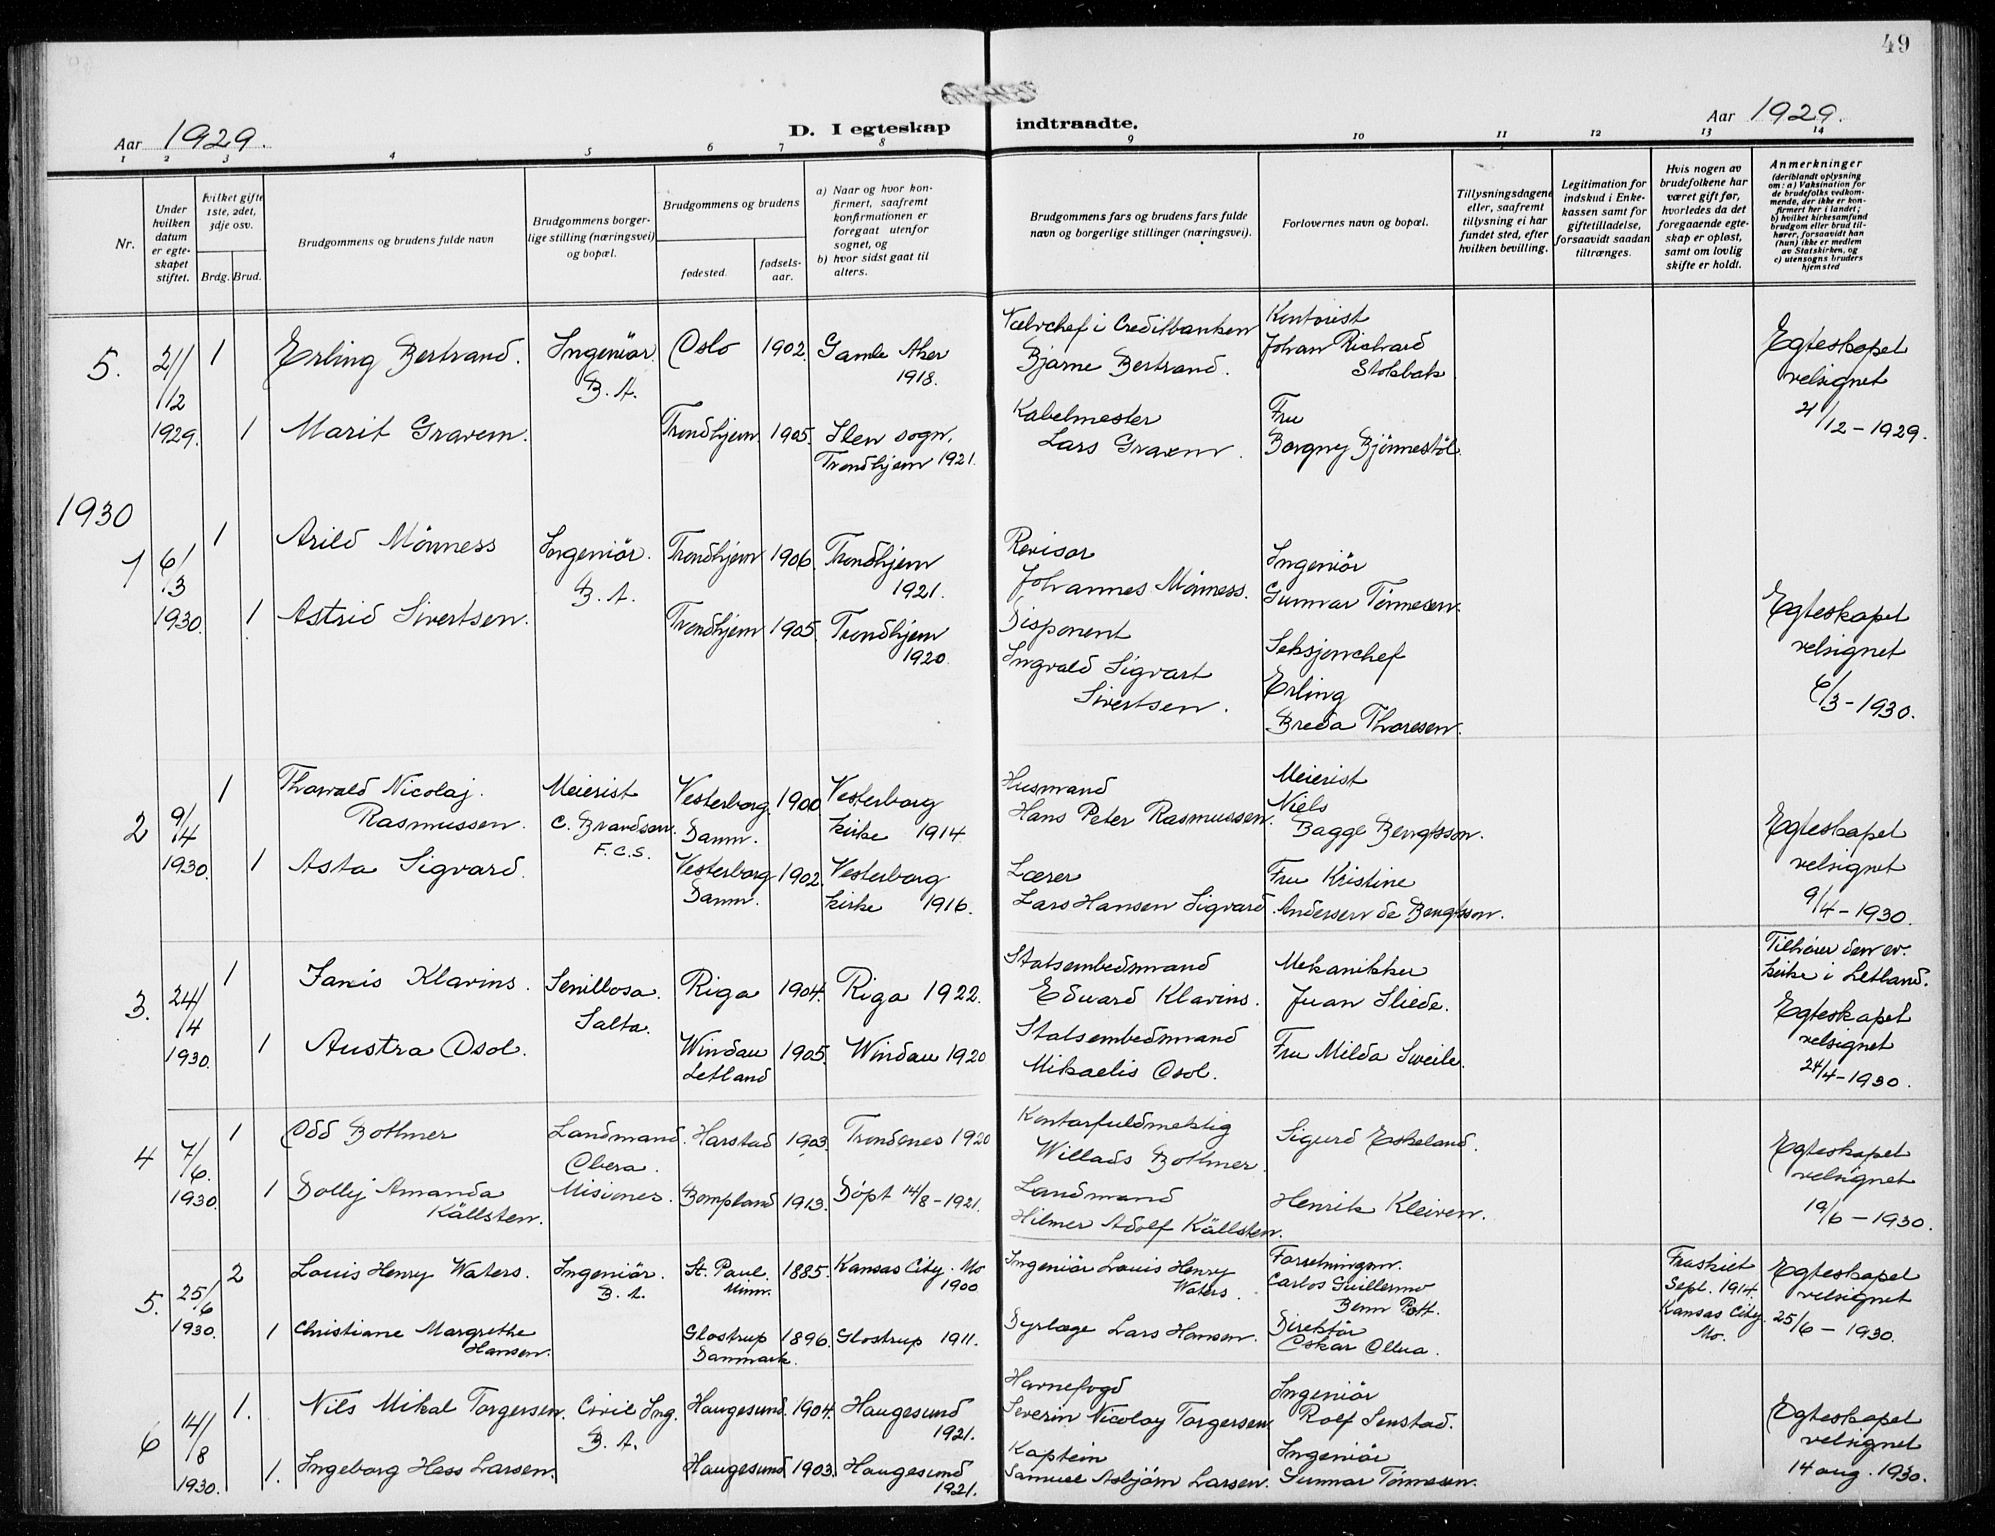 49
Aar 1929.
D. I egteskap indtraadte.
Aar 1929.
1 2 3 4 5 6 7 8 9 10 11 12 13 14
Nr.
Under hvilken datum er egte-skapet stiftet.
hvilket gifte 1ste, 2det, 3dje osv.
Brdg. Brud.
Brudgommens og brudens fulde navn
Brudgommens borger-lige stilling (næringsvei) og bopæl.
Brudgommens og brudens
fødested.
fødsels-aar.
a) Naar og hvor kon-firmert, saafremt konfirmationen er foregaat utenfor sognet, og
b) hvor sidst gaat til alters.
Brudgommens fars og brudens fars fulde navn og borgerlige stillinger (næringsvei).
Forlovernes navn og bopæl.
Tillysningsdagene eller, saafremt tillysning ei har fundet sted, efter hvilken bevilling.
Legitimation for indskud i Enke-kassen samt for giftetilladelse, forsaavidt saadan tiltrænges.
Hvis nogen av brudefolkene har været gift før, hvorledes da det foregaaende egte-skap er opløst, samt om lovlig skifte er holdt.
Anmerkninger
(deriblandt oplysning om: a) Vaksination for de brudefolks vedkom-mende, der ikke er kon-firmert her i landet; b) hvilket kirkesamfund brudgom eller brud til-hører, forsaavidt han (hun) ikke er medlem av Statskirken, og c) utensogns bruders hjemsted
5.
21/12
1929.
1 Erling Bertrand. Ingeniør. B.A. Oslo 1902. Gamle Aker 1918.
Bjarne Bertrand.
Kontorist
Johan Richard
Stokbak
Egteskapet
velsignet
21/12-1929.
1 Marit Gravem. Trondhjem. 1905. Ilen sogn. Trondhjem 1921.
Kabelmester
Lars Gravem.
Fru
Borgny Bjønnestöl
1930
1
6/3
1930.
1 Arild Mönness Ingeniör. B.A. Trondhjem 1906. Trondhjem 1921.
Revisor
Johannes Mönness.
Ingeniör
Gunnar Tönnesen.
1 Astrid Sivertsen. Trondhjem 1905. Trondhjem 1920.
Disponent
Ingvald Sigvart
Sivertsen.
Seksjonchef
Erling
Breda Thoresen.
Egteskapet
velsignet
6/3-1930.
2
9/4
1930.
1 Thorvald Nicolaj.
Rasmussen.
Meierist
C. Brandsen.
F.C.S.
Vesterborg.
Danm.
1900 Vesterborg
kirke 1914.
Husmand
Hans Peter Rasmussen.
Meierist
Niels
Bagge Bengtsson.
1 Asta Sigvard.
Vesterborg
Danm.
1902. Vesterborg
kirke 1916.
Lærer
Lars Hansen Sigvard.
Fru Kristine
Andersen de Bengtsson.
Egteskapet
velsignet
9/4-1930.
3.
24/4
1930.
1 Janis Klavins. Senillosa. Salta. Riga 1904. Riga 1922.
Statsembedmand
Eduard Klavins.
Mekanikker
Juan Sliede.
Tilhører den ev.
kirke i Letland.
Egteskapet
velsignet
24/4-1930.
1 Austra Osol.
Windau
Letland
1905. Windau 1920
Statsembedmand
Mikaelis Osol.
Fru Milda Sweile.
4
7/6.
1930.
1 Odd Bothner Landmand. Obera. Misiones. Harstad 1903. Trondenes 1920
Kontorfuldmektig
Willads Bothner.
Sigurd Eskeland.
1 Dolly Amanda
Källsten.
Bompland 1913. Döpt 14/8-1921.
Landmand
Hilmer Adolf Källsten.
Henrik Kleiven.
Egteskapet
velsignet
19/6-1930.
5.
25/6
1930.
2 Louis Henry Waters. Ingeniör. B.A. St. Paul. Minn. 1885. Kansas City. Mo 1900
Ingeniör Louis Henry
Waters.
Forretningsm.
Carlos Guillermo
Benn Pott.
Fraskilt
Sept. 1914.
Kansas City.
Mo.
Egteskapet
velsignet
25/6-1930.
1 Christiane Margrethe
Hansen.
Glostrup
Danmark.
1896. Glostrup 1911.
Dyrlæge Lars Hansen.
Direktör
Oskar Ollua.
6
14/8
1930.
1. Nils Mikal Torgersen. Civil Ing. B.A. Haugesund. 1904. Haugesund 1921.
Havnefogd
Severin Nicolay Torgersen.
Ingeniör
Rolf Senstad.
1. Ingeborg Hess Larsen. Haugesund 1903. Haugesund 1921.
Kaptein
Samuel Asbjörn Larsen.
Ingeniör
Gunnar Tönnesen.
Egteskapet
velsignet
14 aug. 1930.